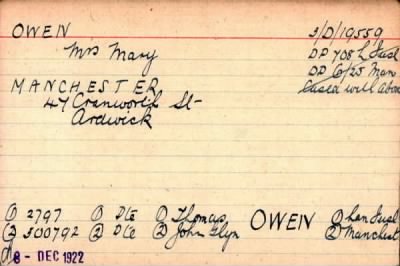 OWEN 3/D/19559
Mrs Mary DP 708 L Fusl
DP 6/25 Man
MANCHESTER Cased with above
47 Cranworth St
Ardwick
① 2797 ① Pte ① Thomas, OWEN ① Lan Fusl
② 300792 ② Pte ② John Glyn ② Manchest
8 - DEC 1922